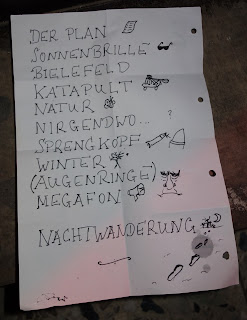 DER PLAN
SONNENBRILLE
BIELEFELD
KATAPULT
NATUR
NIRGENDWO... ?
SPRENGKOPF
WINTER
(AUGENRINGE)
MEGAFON
NACHTWANDERUNG